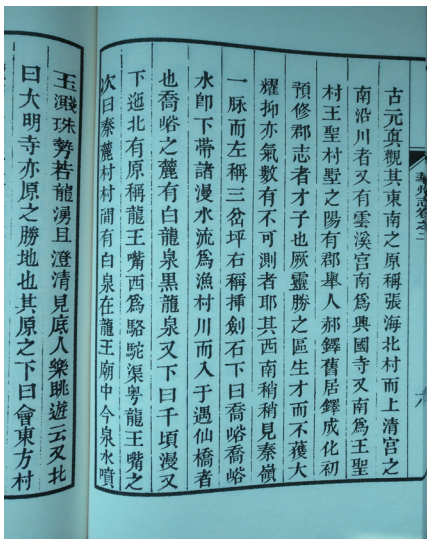 古元真觀其東南之原稱張海北村而上清宮之
南沿川者又有雲溪宮南爲興國寺又南爲王聖
村王聖村墅之陽有郡舉人郝鐸舊居鐸成化初
預修郡志者才子也厥靈勝之區生才而不獲大
耀抑亦氣數有不可測者耶其西南稍稍見秦嶺
一脉而左稱三岔坪右稱揷劍石下曰喬峪喬峪
水卽下帶諸漫水流爲漁村川而入于遇仙橋者
也喬峪之麓有白龍泉黒龍泉又下曰千頃漫又
下迤北有原稱龍王嘴西爲駱駝渠粤龍王嘴之
次曰秦麓村村間有白泉在龍王廟中今泉水噴
玉濺珠勢若龍湧且澄清見底人樂眺遊云又北
曰大明寺亦原之勝地也其原之下曰會東方村
華州志卷之二